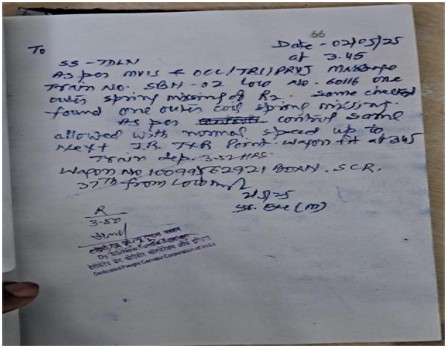 66
To
Date - 02/05/25
at 3.45
SS - TDLN
As per MVIS & OCC/TRI/PRYJ Message
Train No. SBN-02 Loco No. 60116 one
outer spring missing of R2. Same checked
found one outer coil spring missing.
As per control same
allowed with normal speed up to
Next T&R Point. Wagon fit at 3.45
Train dep. 3.52 HRS.
Wagon No. BOXN. SCR.
37th from Loco
2/5/25
R
3-50
Dedicated Freight Corridor Corporation of India